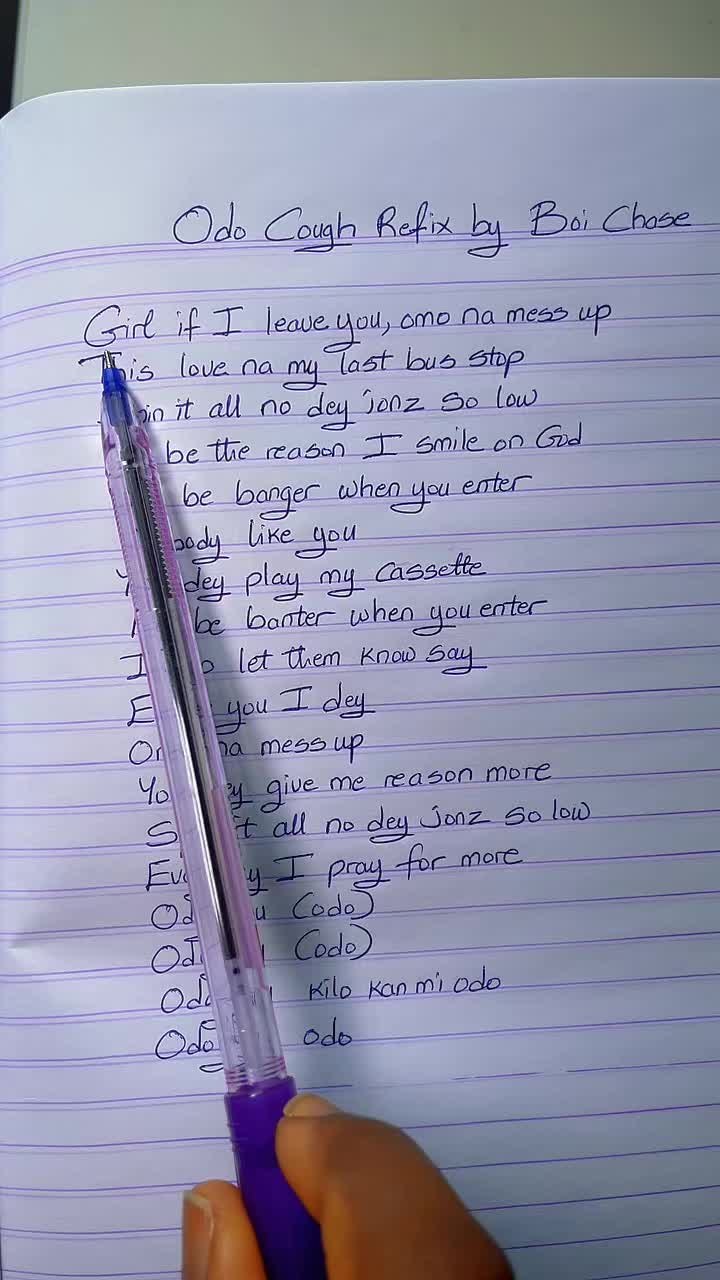 Odo Cough Refix by Boi Chase
Girl if I leave you, omo na mess up
This love na my last bus stop
it all no dey jonz so low
be the reason I smile on God
be banger when you enter
body like you
dey play my cassette
be banter when you enter
I let them know say
you I dey
na mess up
give me reason more
it all no dey jonz so low
I pray for more
(odo)
(odo)
kilo kan mi odo
Odo odo